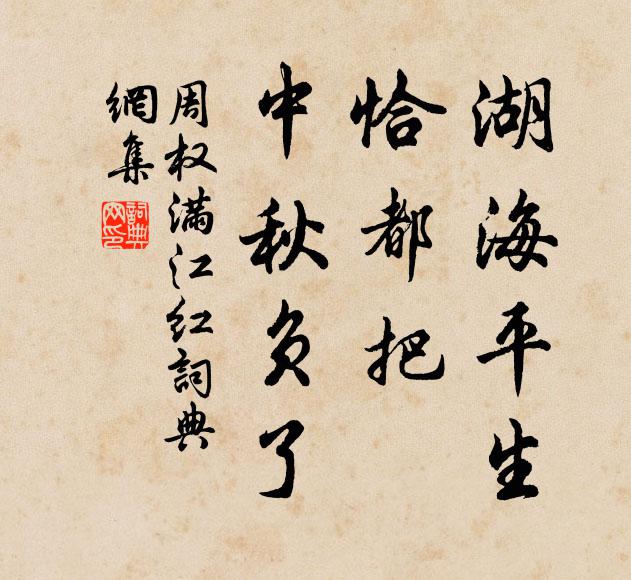 湖海平生
恰都把
中秋负了
周权满江红词典
網集
詞典
网印